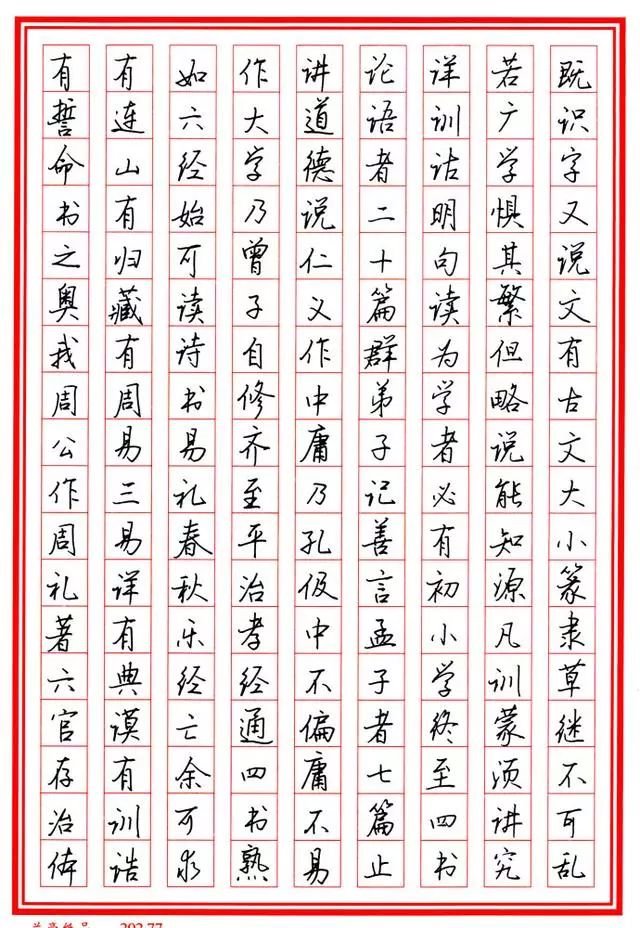 既识字又说文有古文大小篆隶草继不可乱
若广学惧其繁但略说能知源凡训蒙须讲究
详训诂明句读为学者必有初小学终至四书
论语者二十篇群弟子记善言孟子者七篇止
讲道德说仁义作中庸乃孔伋中不偏庸不易
作大学乃曾子自修齐至平治孝经通四书熟
如六经始可读诗书易礼春秋乐经亡余可求
有连山有归藏有周易三易详有典谟有训诰
有誓命书之奥我周公作周礼著六官存治体
292.77